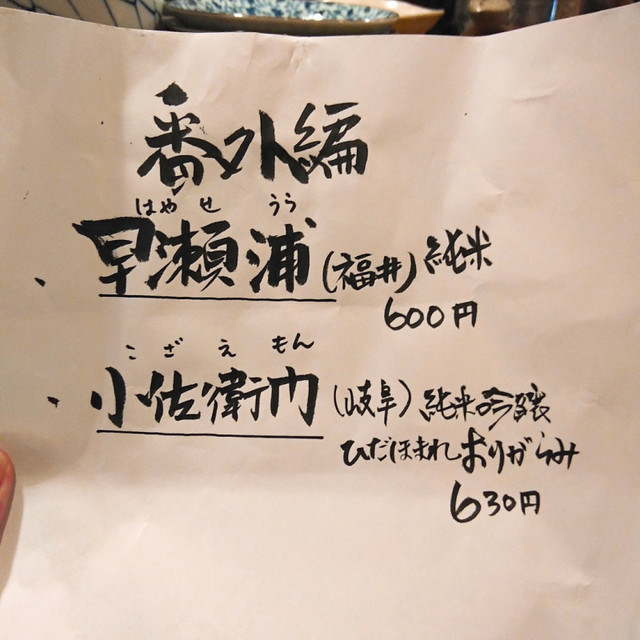 番外編
はやせ うら
、早瀬浦(福井)純米
600円
こざえもん
、小佐衛門(岐阜)純米吟醸
ひだほまれおりがらみ
630円